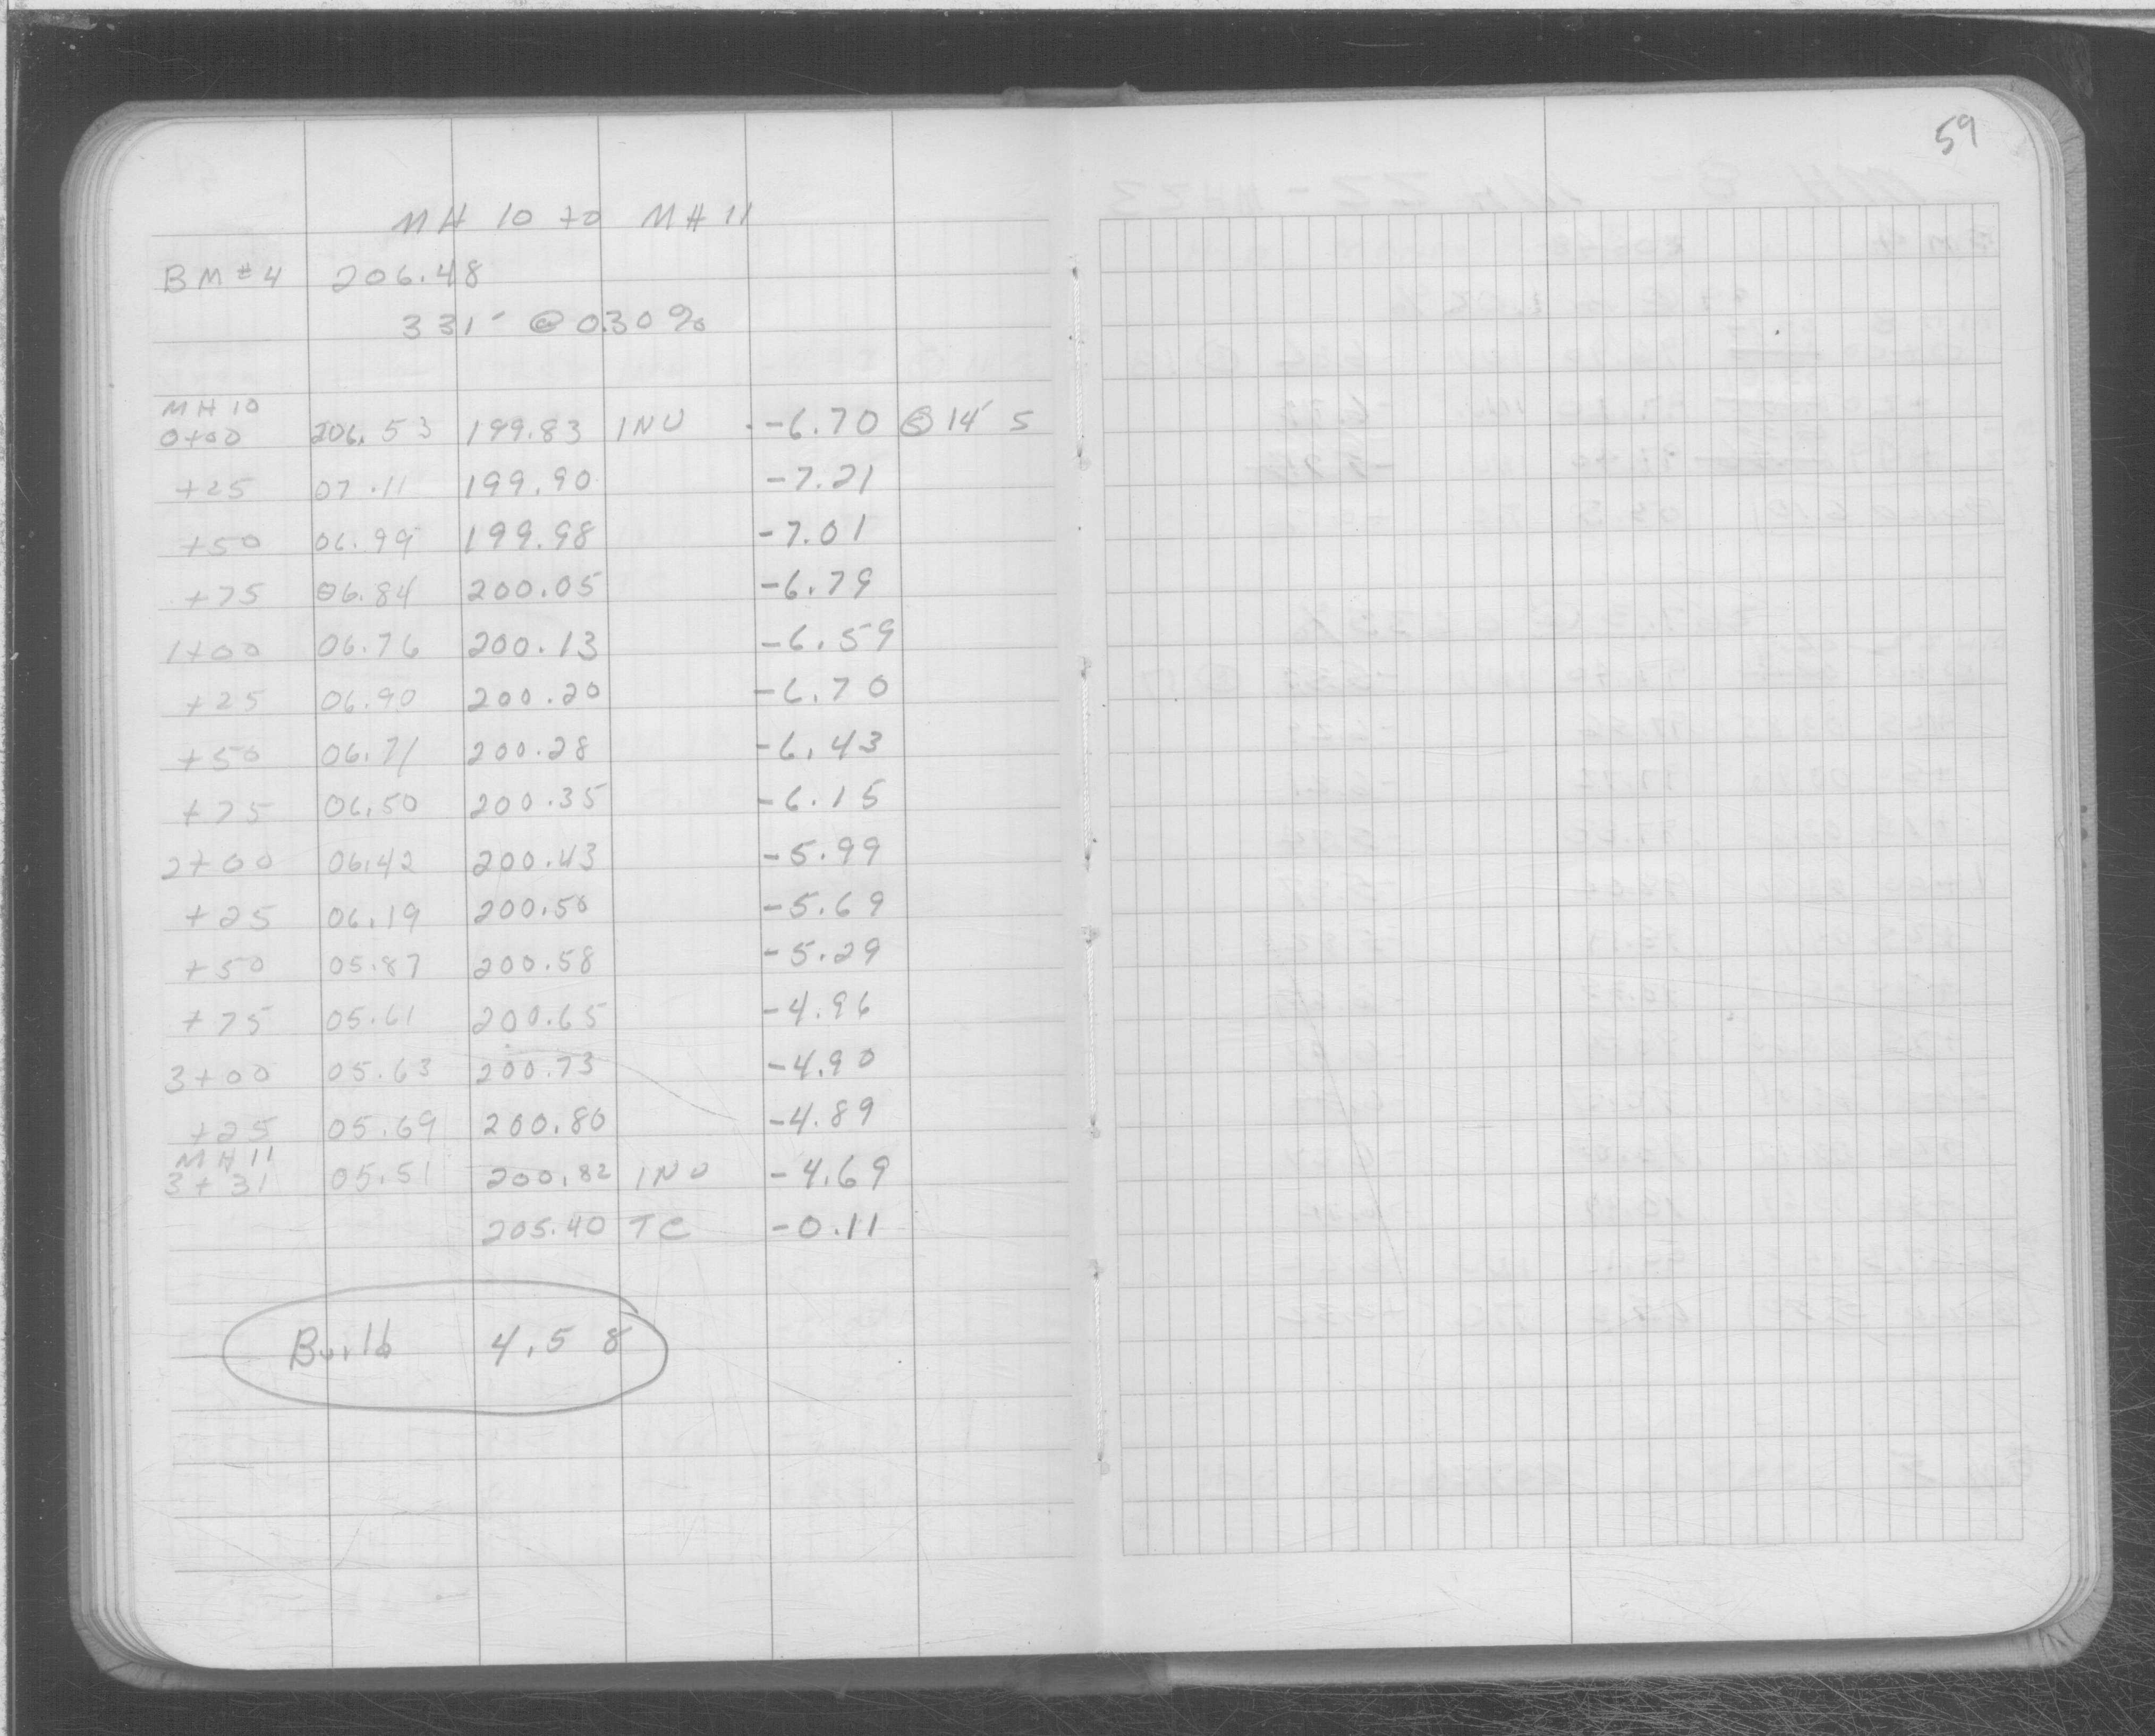 59
MH 10 to MH 11
BM #4 206.48
331' @ 0.30%
MH 10
0+00 206.53 199.83 INV -6.70 @ 14' S
+25 07.11 199.90 -7.21
+50 06.99 199.98 -7.01
+75 06.84 200.05 -6.79
1+00 06.76 200.13 -6.59
+25 06.90 200.20 -6.70
+50 06.71 200.28 -6.43
+75 06.50 200.35 -6.15
2+00 06.42 200.43 -5.99
+25 06.19 200.50 -5.69
+50 05.87 200.58 -5.29
+75 05.61 200.65 -4.96
3+00 05.63 200.73 -4.90
+25 05.69 200.80 -4.89
MH 11
3+31 05.51 200.82 INV -4.69
205.40 TC -0.11
Build 4.58